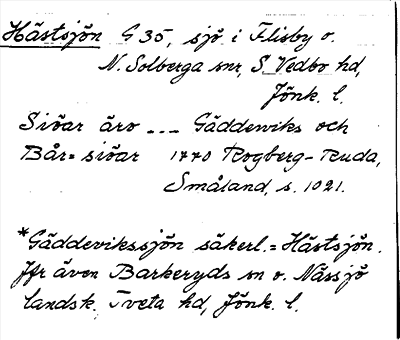 Hästsjön G 35, sjö i Flisby o.
N. Solberga snr, S Vedbo hd,
Jönk. l.
Siöar äro --- Gäddewiks och
Bår= siöar 1770 Rogberg-Ruda,
Småland, s. 1021.
*Gäddevikssjön säkerl. = Hästsjön.
Jfr även Barkeryds sn o. Nässjö
landsk. Tveta hd, Jönk. l.